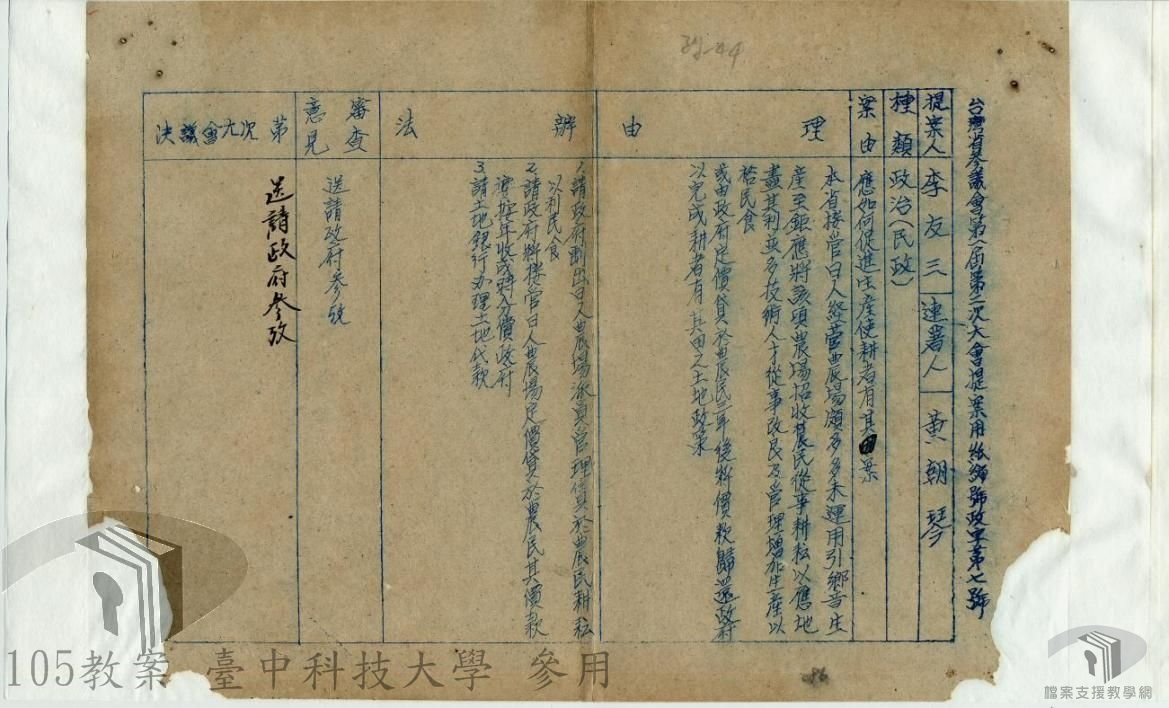 台灣省參議會第一屆第二次大會提案用紙編號政字第七號
提案人 李友三 連署人 黃朝琴
種類 政治(民政)
案由 應如何促進生產使耕者有其田案
理由
本省接管日人經營農場頗多多未運用引響音生
產至鉅應將該項農場招收農民從事耕耘以應地
盡其利並多技術人才從事改良及管理增加生產以
裕民食
或由政府定價貸於農民三年後將價款歸還政府
以完成耕者有其田之土地政策
辦法
1.請政府劃出日人農場派員管理貸於農民耕耘
以利民食
2.請政府將接管日人農場定價貸於農民其價款
按年收成時分償政府
3.請土地銀行办理土地代款
審查意見
送請政府參攷
第九次會議決
送請政府參攷
39-44
86
105教案 臺中科技大學 參用
檔案支援教學網